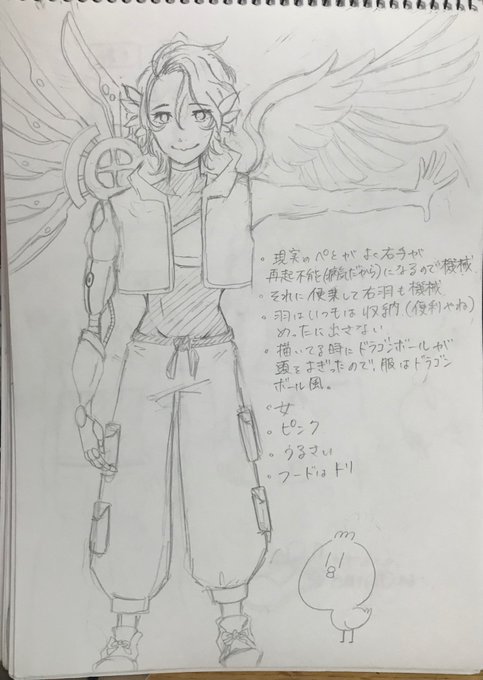 ・現実のぺとがよく右手が
再起不能(病気だから)になるので機械
・それに便乗して右羽も機械
・羽はいつもは収納(便利やね)
めったに出さない
・描いてる時にドラゴンボールが
頭をよぎったので、服はドラゴン
ボール風。
・女
・ピンク
・うるさい
・フードはトリ